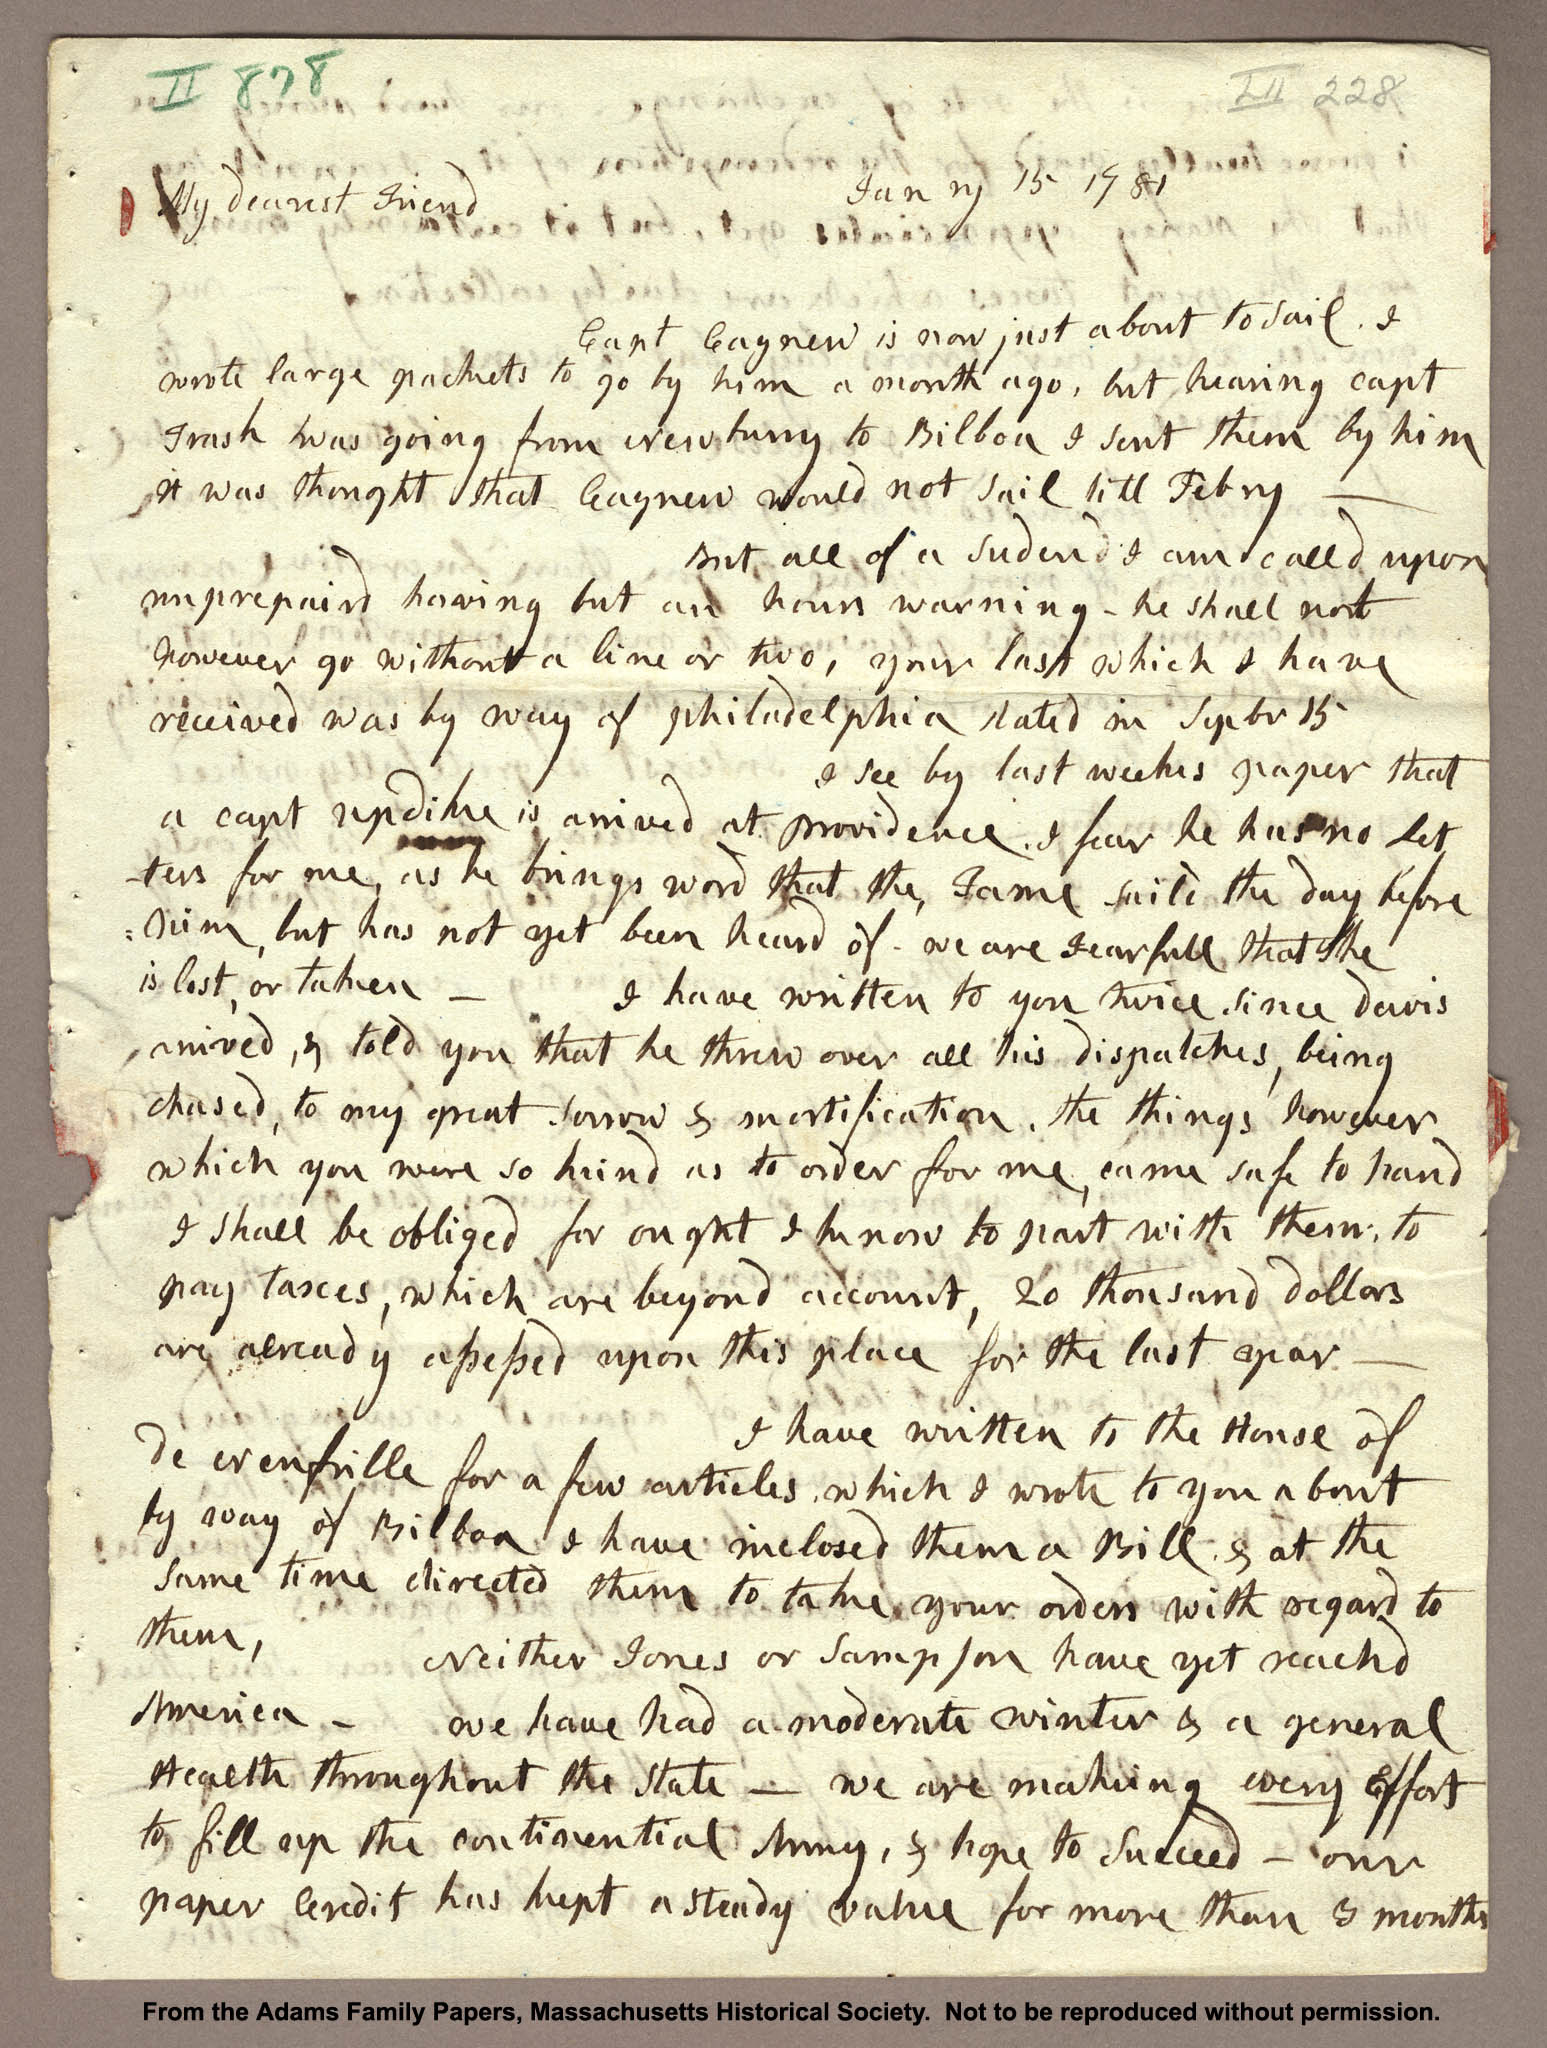 II 878
III 228
My dearest Friend
Janry 15 1781
Capt Cagnew is now just about to sail. I
wrote large packets to go by him a month ago, but hearing capt
Trash was going from Newbury to Bilboa I sent them by him
it was thought that Cagnew would not sail till Febry —
But all of a sudend I am calld upon
unprepaird having but an hours warning - he shall not
however go without a line or two, your last which I have
received was by way of philadelphia dated in Sepbr 15
I see by last weeks paper that
a capt updike is arrived at providence. I fear he has no Let
-ters for me, as he brings word that the, Jame saild the day before
him, but has not yet been heard of - we are fearfull that she
is lost, or taken — I have written to you twice since davis
arrived, & told you that he threw over all his dispatches, being
chased, to my great sorrow & mortification. the things however
which you were so kind as to order for me, came safe to hand
I shall be obliged for ought I know to part with them, to
pay taxes, which are beyond account, 20 thousand dollors
are already assessed upon this place for the last year —
I have written to the House of
de Neufville for a few articles which I wrote to you about
by way of Bilboa I have inclosed them a Bill, & at the
same time directed them to take your orders with regard to
them, Neither Jones or Sampson have yet reachd
America — we have had a moderate winter & a general
Health throughout the state — we are making every Effort
to fill up the continential Army, & hope to succeed — our
paper Credit has kept a steady value for more than 8 months
From the Adams Family Papers, Massachusetts Historical Society. Not to be reproduced without permission.